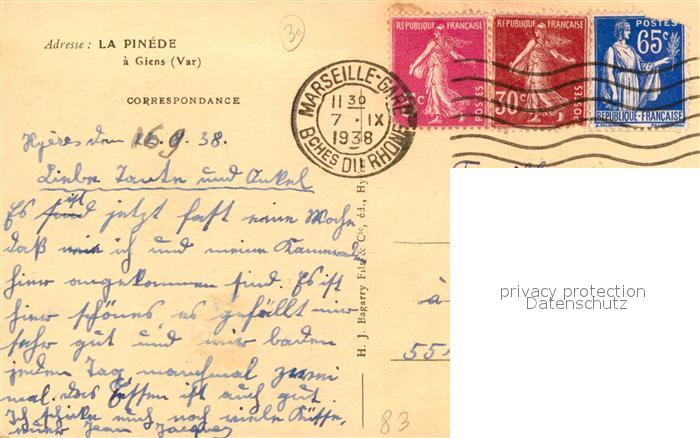 30
Adresse : LA PINÉDE
à Giens (Var)
CORRESPONDANCE
RÉPUBLIQUE FRANÇAISE
POSTES
RÉPUBLIQUE FRANÇAISE
30c
POSTES
POSTES
65c
RÉPUBLIQUE FRANÇAISE
MARSEILLE-GARE
11 30
7 · IX
1938
BCHES DU RHONE
Hyères den 6.9.38.
169
Liebe Tante und Onkel
Es ist jetzt fast eine Woche
daß ich und meine Kameraden
hier angekommen sind. Es ist
hier schönes es gefällt mir
sehr gut und wir baden
jeden Tag manchmal zwei
mal. das Essen ist auch gut.
Ich schicke euch noch viele Küsse,
euer Jean Jacques
H. J. Bagarry Fils & Cie, éd., Hy
à
55
83
privacy protection
Datenschutz